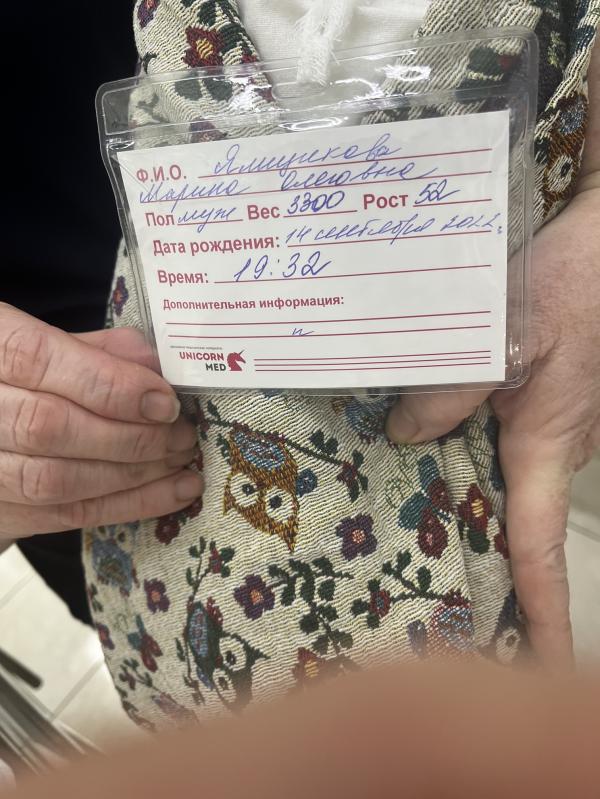 Ф.И.О. Ямщикова
Марина Олеговна
Пол муж Вес 3300 Рост 52
Дата рождения: 14 сентября 2022г.
Время: 19:32
Дополнительная информация:
UNICORN
MED